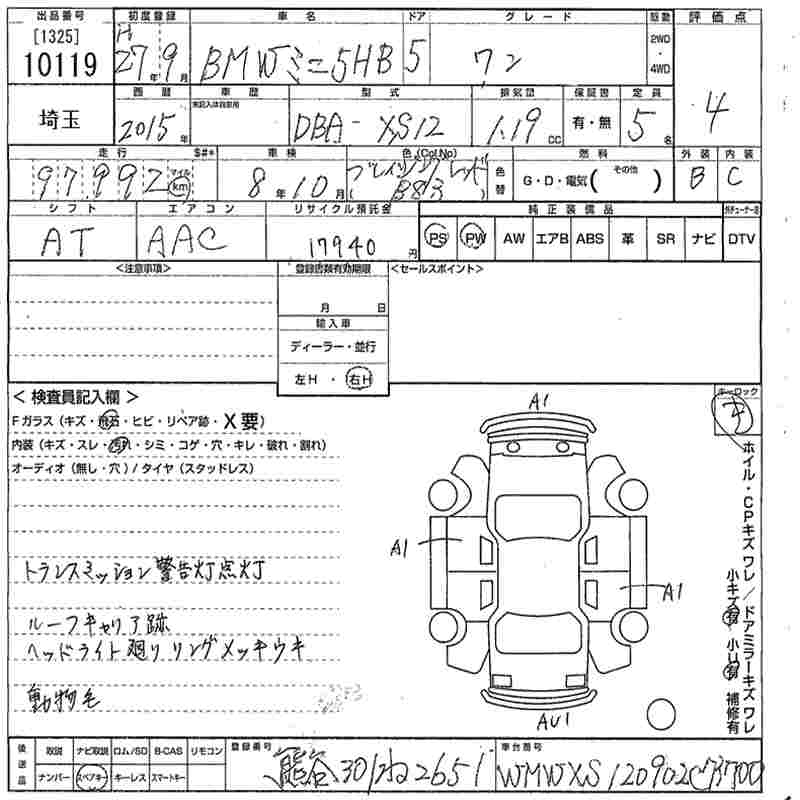 出品番号 初度登録 車名 ドア グレード 駆動 評価点
[1325]
10119 H 27年 9月 BMWミニ5HB 5 ワン 2WD・4WD 4
西暦 車歴 型式 排気筒 保証書 定員
埼玉 2015年 未記入は自家用 DBA-XS12 1.19CC 有・無 5名
走行 $#* 車検 色(Col,No) 燃料 外装 内装
97,992 マイル km 8年10月 ブレイジングレッド (B83) 色替 G・D・電気( その他 ) B C
シフト エアコン リサイクル預託金 純正装備品
AT AAC 17940円 PS PW AW エアB ABS 革 SR ナビ DTV
<注意事項> 登録書類有効期限 <セールスポイント>
月 日
輸入車
ディーラー・並行
左H・右H
<検査員記入欄> キーロック
Fガラス(キズ・飛石・ヒビ・リペア跡・X要)
内装(キズ・スレ・汚れ・シミ・コゲ・穴・キレ・破れ・割れ)
オーディオ(無し・穴)/タイヤ(スタッドレス)
A1
A1
A1
AU1
トランスミッション警告灯点灯
ルーフキャリア跡
ヘッドライト廻りリングメッキウキ
動物毛
ホイル・CPキズワレ/ドアミラーキズワレ
小キズ有 小U有 補修有
後送品 取説 ナビ取説 ロム/SD B-CAS リモコン 登録番号 車台番号
ナンバー スペアキー キーレス スマートキー 熊谷301ね2651 WMWXS120902C73700